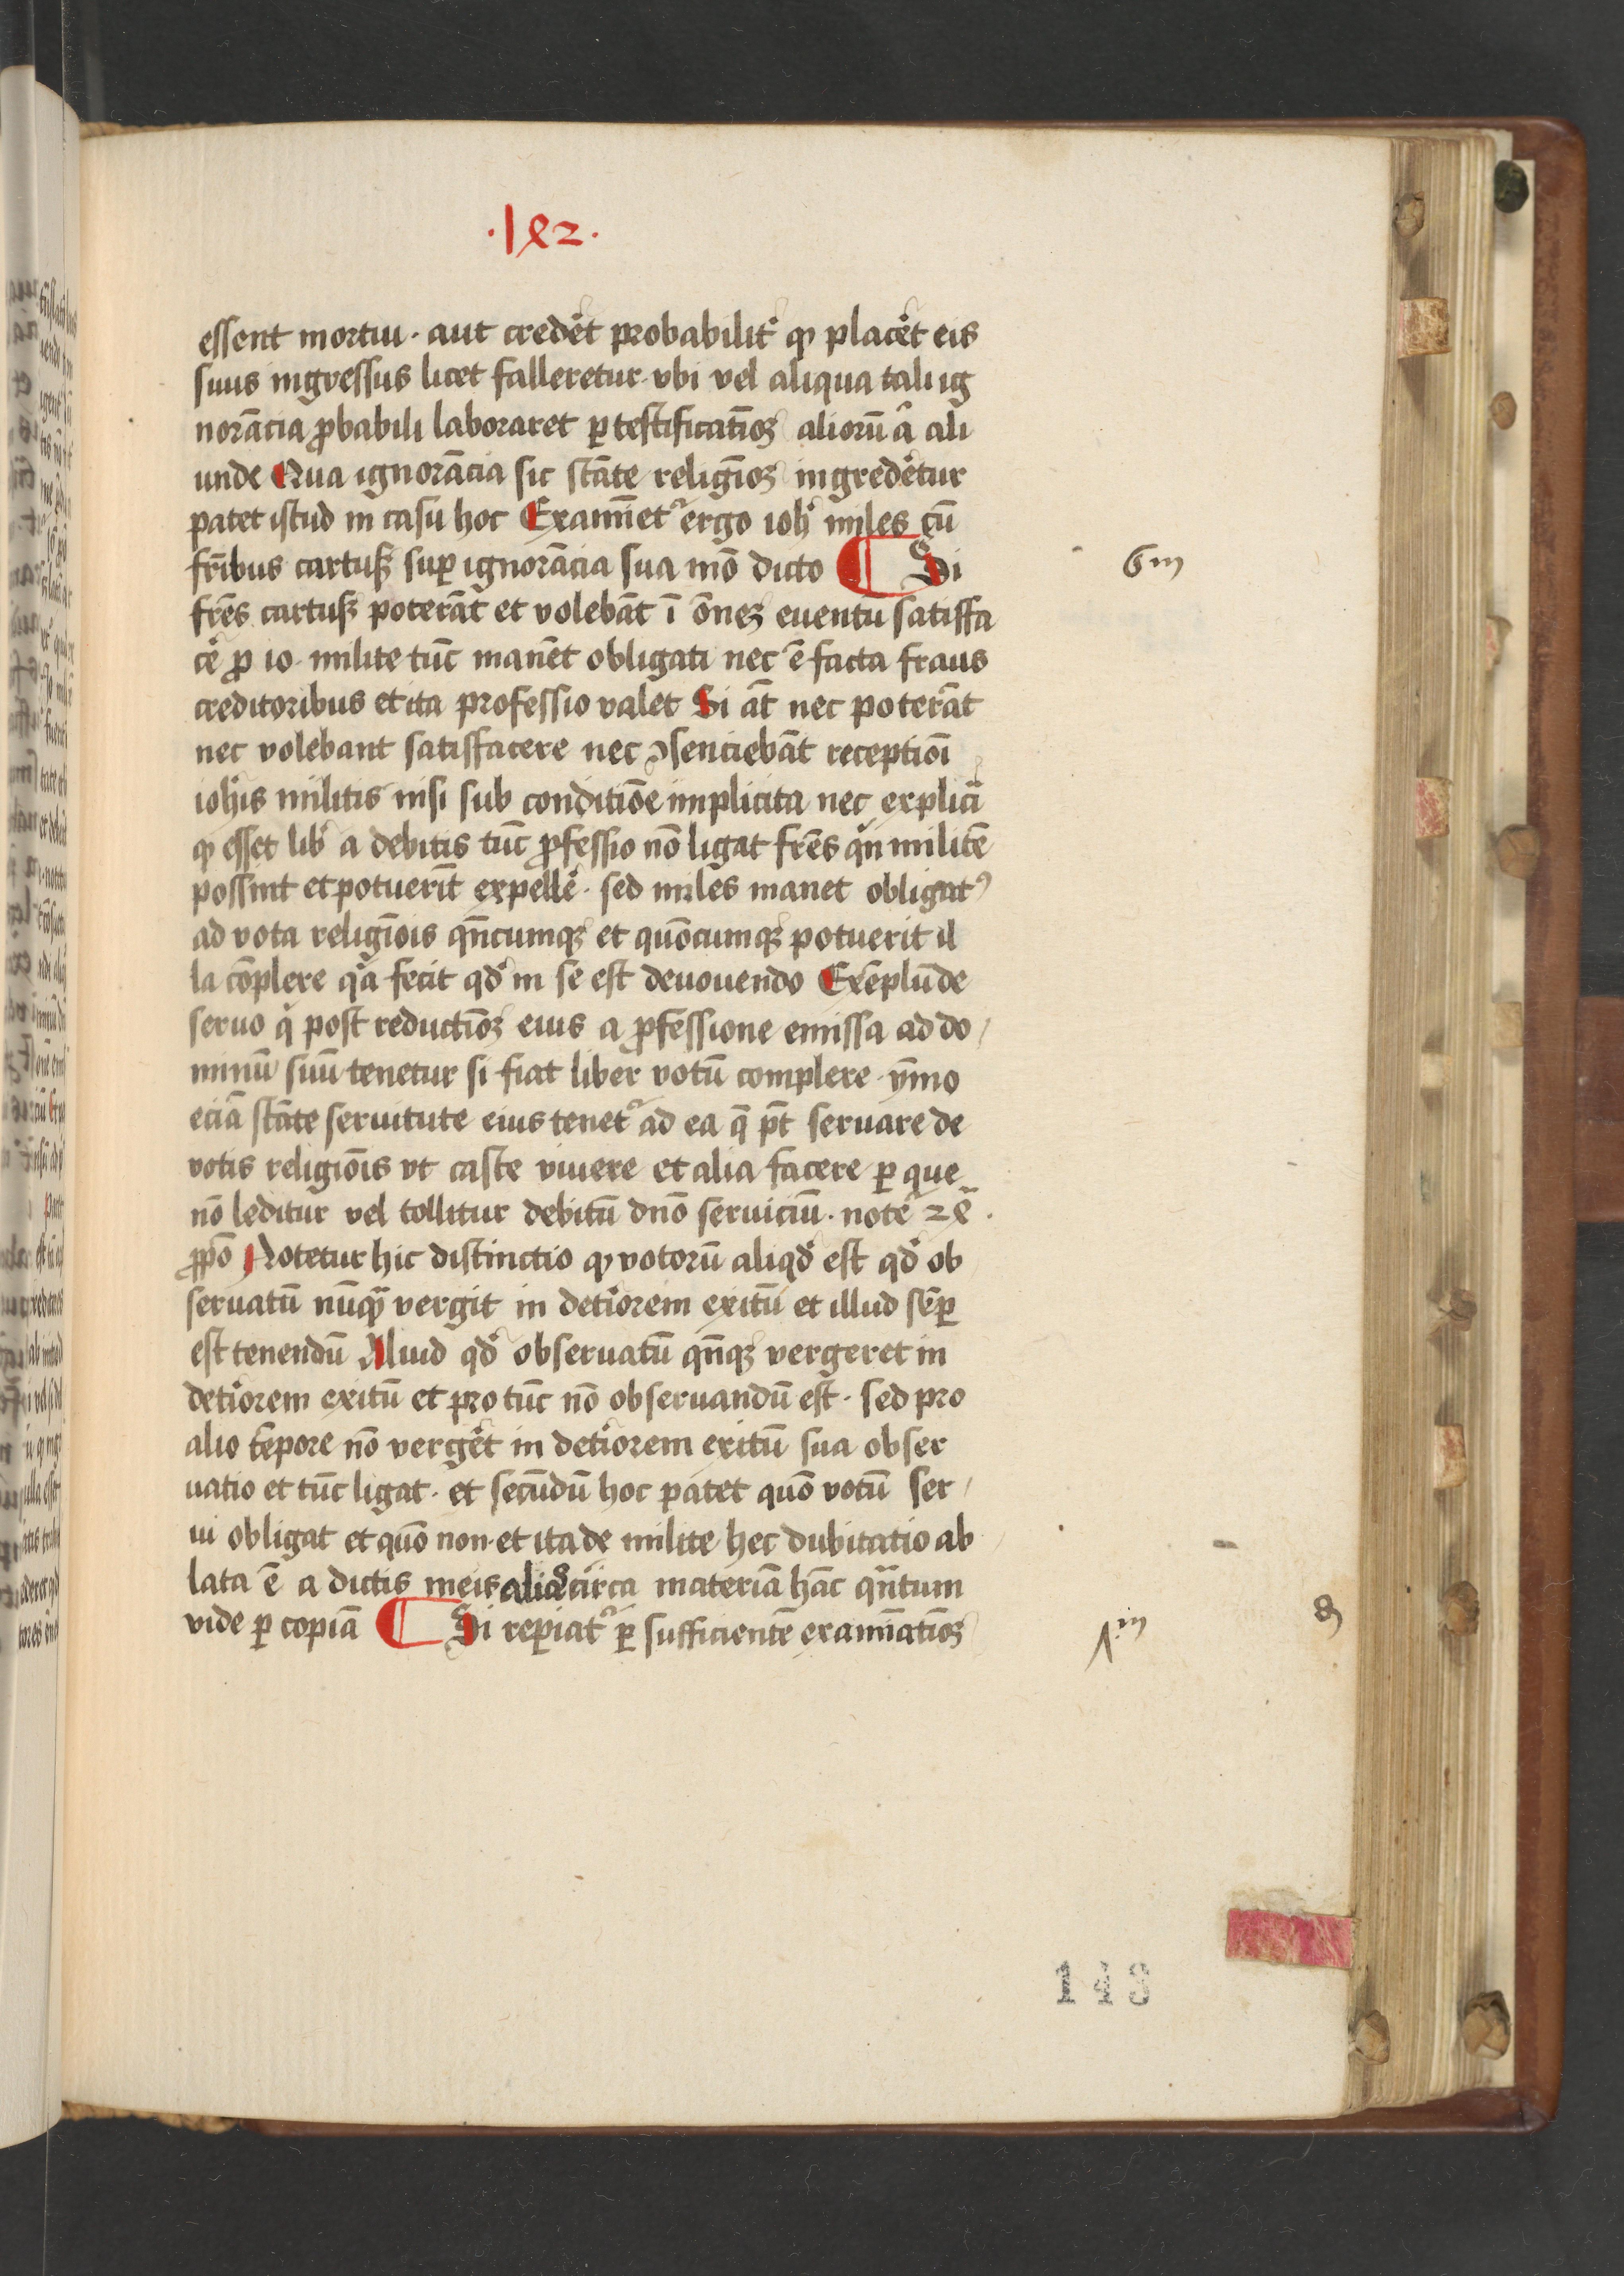 ·lx2·
essent mortui · aut crederet probabilit̉ ꝙ placet̉ eis
suus ingressus licet falleretur · vbi vel aliqua tali ig
norācia ꝓbabili laboraret ꝑ testificatōꝫ aliorū aͥ ali
unde Qua ignorācia sic stāte religōꝫ ingredētur
patet istud in casu hoc Examīet᷑ ergo ioh̉ miles cū
fr̄ibus cartuß suꝑ ignorācia sua mō dicto ¶ Si
6m
fr̄es cartuß poterāt et volebāt ī ōneꝫ euentū satisffa
ce᷑ ꝓ io· milite tūc manēt obligati nec ē facta fraus
creditoribus et ita professio valet Si āt nec poterāt
nec volebant satisffacere nec ꝯsenciebāt receptiōī
ioh̄is militis nisi sub conditiōe implicita nec explicͣi
ꝙ esset lib̉ a debitis tūc ꝓfessio nō ligat fr̄es qͥn militē
possint et potuerīt expelle᷑ · sed miles manet obligatꝰ
ad vota religiōis qn̄cumqꝫ et quōcumqꝫ potuerit il
la cōplere qͥa fecit qd̉ in se est deuouendo Exēplū de
seruo qͥ post reductiōꝫ eius a ꝓfessione emissa ad do
minū suū tenetur si fiat liber votū complere · ȳmo
eciā stāte seruitute eius tenet᷑ ad ea q̄ pt̄ seruare de
votis religiōis vt caste viuere et alia facere ꝑ que
nō leditur vel tollitur debitū dn̄o seruiciū · note᷑ 2x̄ ·
ꝓpō Notetur hic distinctio ꝙ votorū aliqd̉ est qd̉ ob
seruatū nūqͣ vergit in deti̇orem exitū et illud sēꝑ
est tenendū Aliud qd̉ obseruatū qn̄qꝫ vergeret in
deti̇orem exitū et pro tūc nō obseruandū est · sed pro
alio tēpore nō verget̉ in deti̇orem exitū sua obser
uatio et tūc ligat · et secūdū hoc patet quō votū ser
ui obligat et quō non · et ita de milite hec dubitatio ab
lata ē a dictis meis alias circa materiā hāc qn̄tum
vide ꝑ copiā ¶ Si reꝑiat᷑ ꝑ sufficientē examīatiōꝫ
1m
143